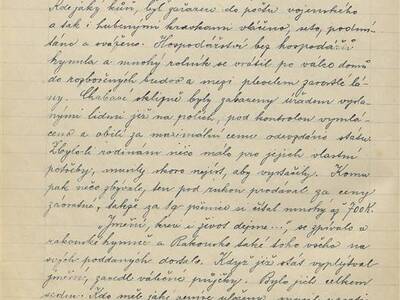 Kde jaký kůň, byl zařazen do počtu vojenského
a tak i hubenými kravkami vláčeno, seto, podmí-
táno a sváženo. Hospodářství bez hospodářů
hynula a mnohý rolník se vrátil po válce domů
do rozbořených budov a mezi plevelem zarostlé lá-
ny. Chabá sklizně byly zabaveny úřadem vysla-
nými lidmi již na polích, pod kontrolou vymlá-
ceno a obilí za maximální cenu odevzdáno státu.
Zbylo-li rodinám něco málo pro jejich vlastní
potřeby, musely skoro nejíst, aby vystačily. Komu
pak něco zbývalo, ten pod rukou prodával za ceny
závratné, takže za 1q pšenice si účtal mnohý až 700K.
„Jmění, krev i život dejme...", se zpívalo v
rakouské hymně a Rakousko také toho všeho na
svých poddaných dostalo. Když již stát vyplýtval
jmění, zavedl válečné půjčky. Bylo jich celkem
sedm. Kdo měl jaké peníze